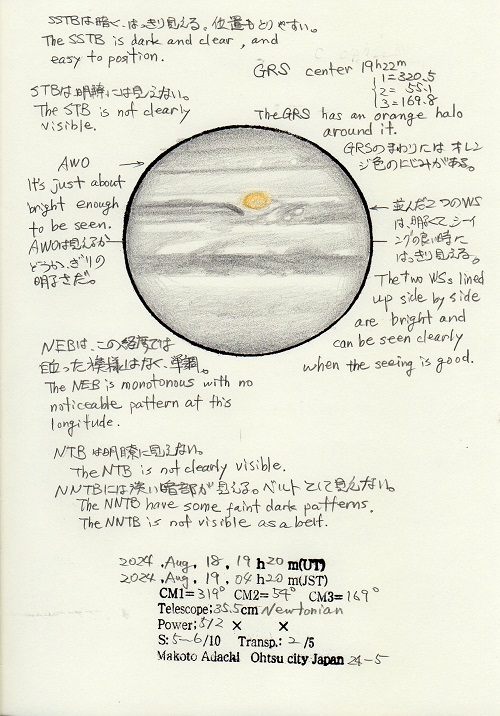 SSTBは暗く、はっきり見える。位置もとりやすい。
The SSTB is dark and clear, and
easy to position.
GRS center 19h22m
1=320.5
2= 55.1
3=169.8
STBは明瞭には見えない。
The STB is not clearly
visible.
The GRS has an orange halo
around it.
GRSのまわりには オレン
ジ色のにじみがある。
AWO
It's just about
bright enough
to be seen.
AWOは見えるか
どうか、ぎりの
明るさだ。
並んだ2つのWS
は、明るくて、シーイ
ングの良い時に
はっきり見える。
The two WSs lined
up side by side
are bright and
can be seen clearly
when the seeing is good.
NEBは、この経度では
目立った模様はなく、単調。
The NEB is monotonous with no
noticeable pattern at this
longitude.
NTBは明瞭に見えない。
The NTB is not clearly visible.
NNTBには淡い暗部が見える。ベルトとして見えない。
The NNTB have some faint dark patterns.
The NNTB is not visible as a belt.
2024 .Aug. 18 . 19 h20 m(UT)
2024 .Aug. 19 . 04 h20 m(JST)
CM1= 319° CM2= 54° CM3= 169°
Telescope; 35.5cm Newtonian
Power; 512 × ×
S: 5~6/10 Transp.: 2/5
Makoto Adachi Ohtsu city Japan 24-5